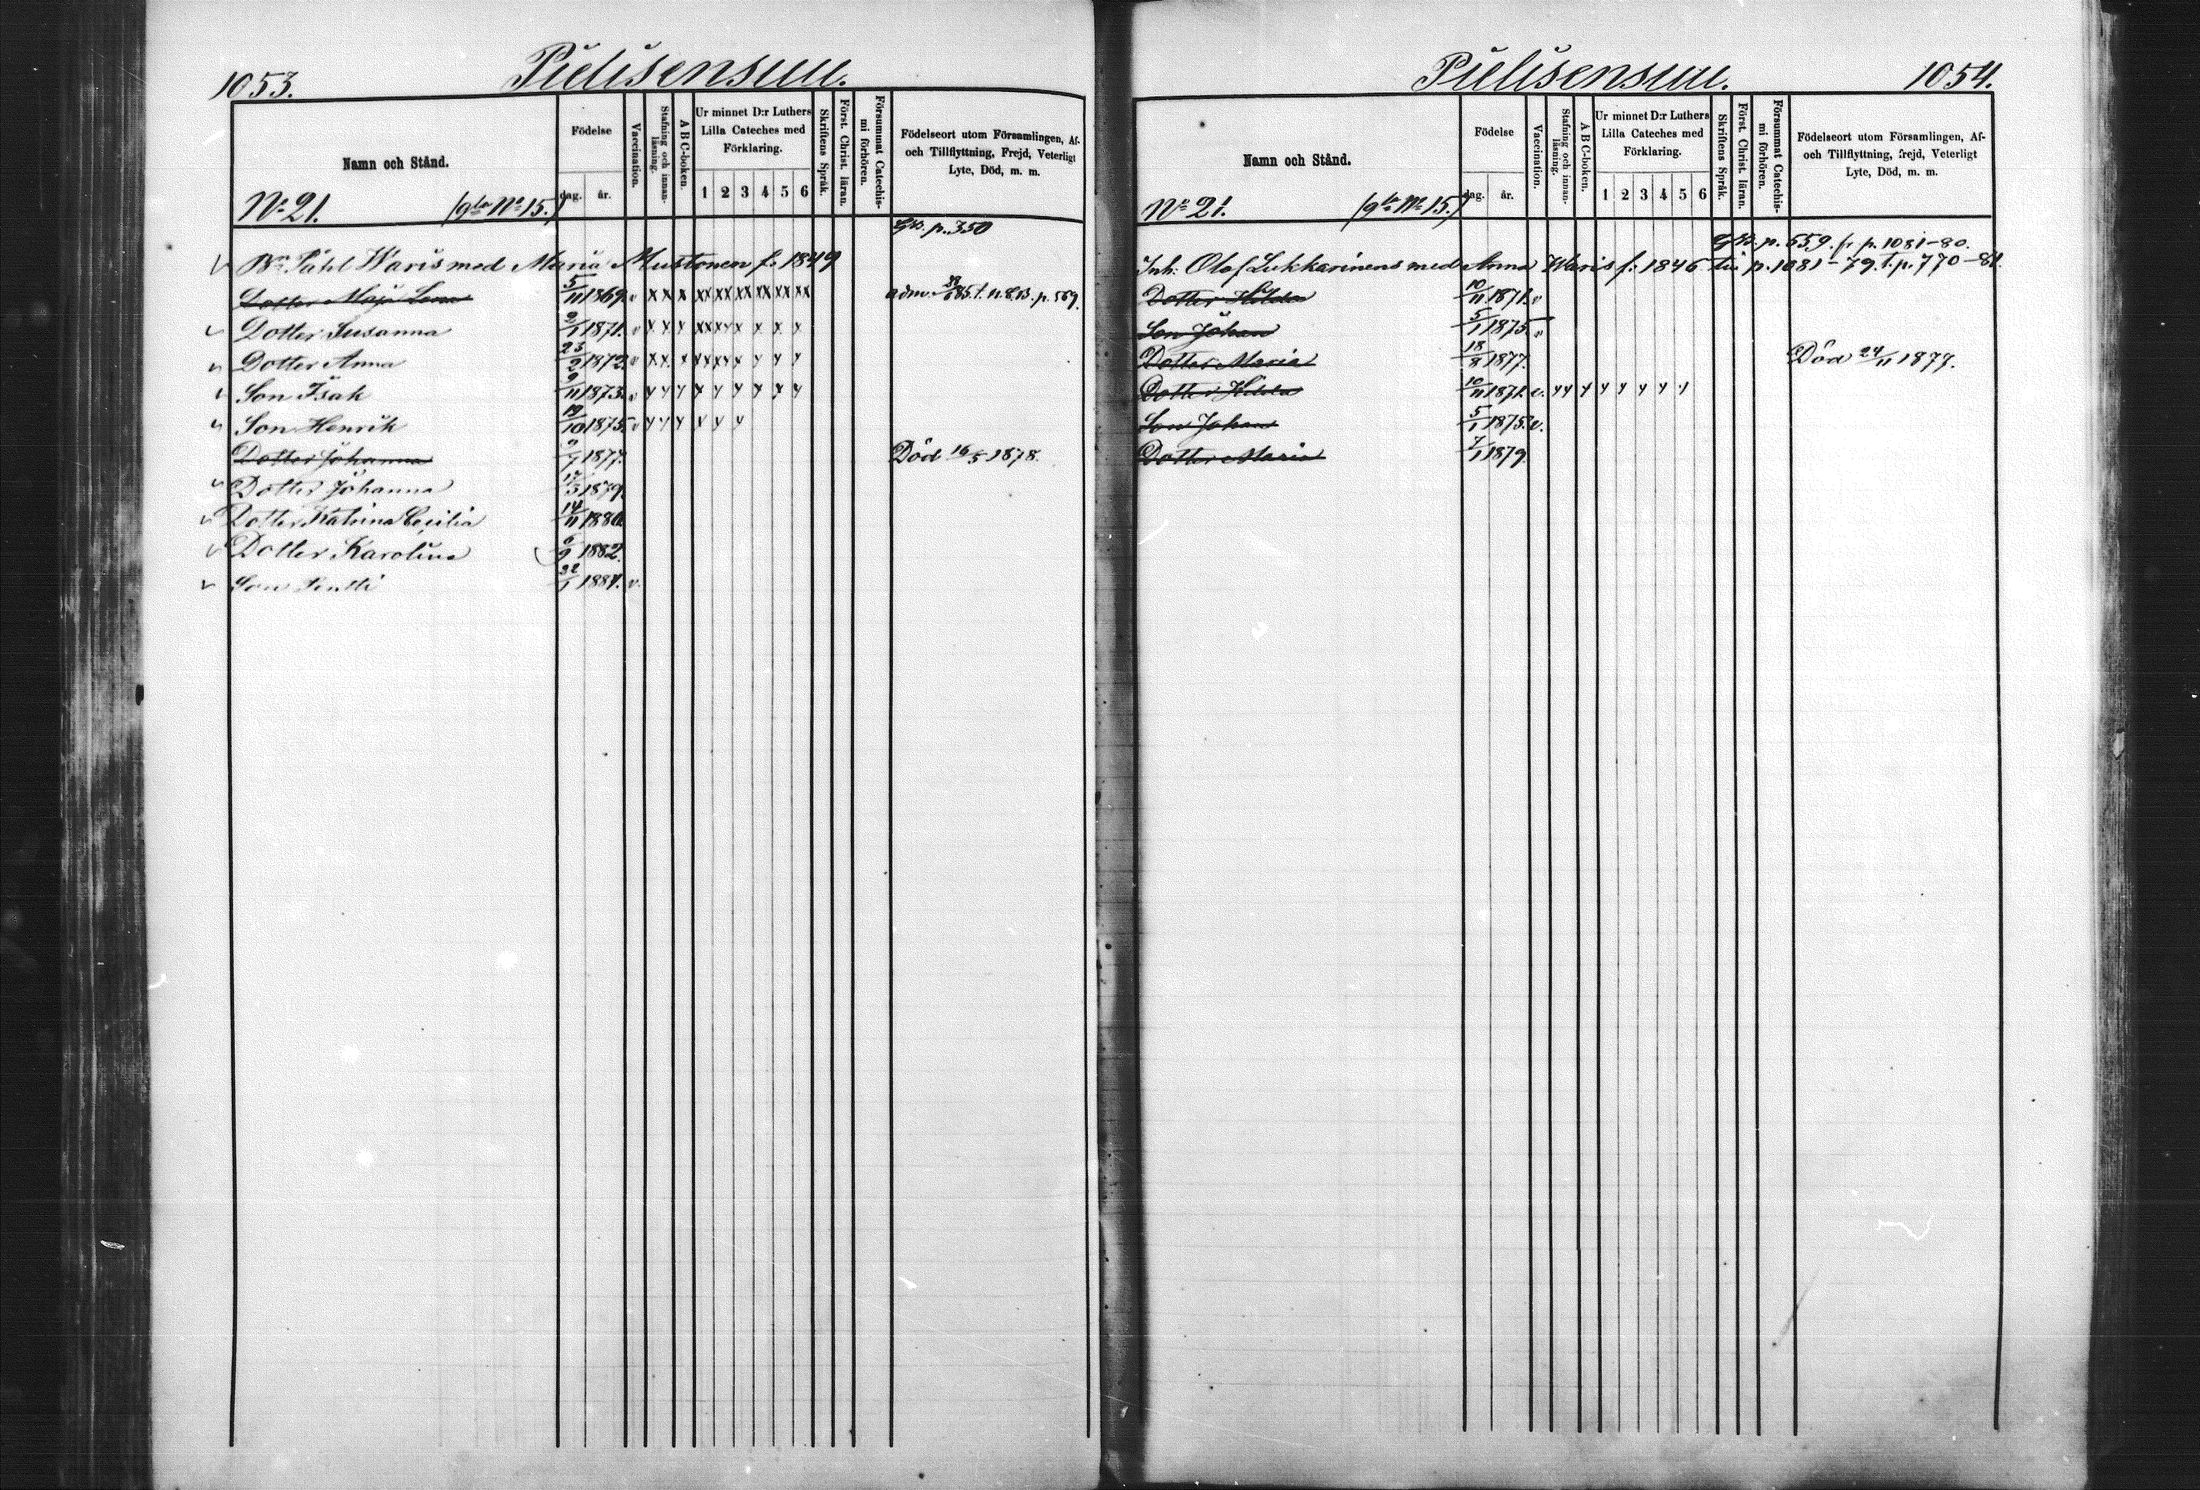 1053. Pielisensuu.
Namn och Stånd.
Födelse
dag. år.
Vaccination.
Stafning och innan-läsning.
A B C-boken.
Ur minnet D:r Luthers Lilla Cateches med Förklaring.
1 2 3 4 5 6
Skriftens Språk.
Först. Christ. läran.
Försummat Catechis-mi förhören.
Födelseort utom Församlingen, Af- och Tillflyttning, Frejd, Veterligt Lyte, Död, m. m.
No 21. (gla No 15.)
p. 350
Påhl Waris med Maria Mustonen f. 1849
Dotter Maja Lena 5/11 1869. v x x x xx xx xx xx xx xx adm. p. 569.
Dotter Susanna 2/1 1871. v
Dotter Anna 23/2 1872. v
Son Isak 9/11 1873. v
Son Henrik 19/10 1875. v
Dotter Johanna 1877. Död 16/5 1878.
Dotter Johanna 17/3 1879.
Dotter Katrina Cecilia 14/11 1880.
Dotter Karolina 6/9 1882.
Son Pentti 22/1 1884. v.
Pielisensuu. 1054.
Namn och Stånd.
Födelse
dag. år.
Vaccination.
Stafning och innan-läsning.
A B C-boken.
Ur minnet D:r Luthers Lilla Cateches med Förklaring.
1 2 3 4 5 6
Skriftens Språk.
Först. Christ. läran.
Försummat Catechis-mi förhören.
Födelseort utom Församlingen, Af- och Tillflyttning, Frejd, Veterligt Lyte, Död, m. m.
No 21. (gla No 15.)
p. 559. fr p. 1081-80.
Inh. Olof Lukkarinens med Anna Waris f. 1846 p. 1081-79. t. p. 770-81.
Dotter Hilda 10/11 1871. v
Son Johan 5/1 1875. v
Dotter Maria 18/8 1877. Död 24/11 1877.
Dotter Hilda 10/11 1871. v.
Son Johan 5/1 1875. v.
Dotter Maria 7/1 1879.